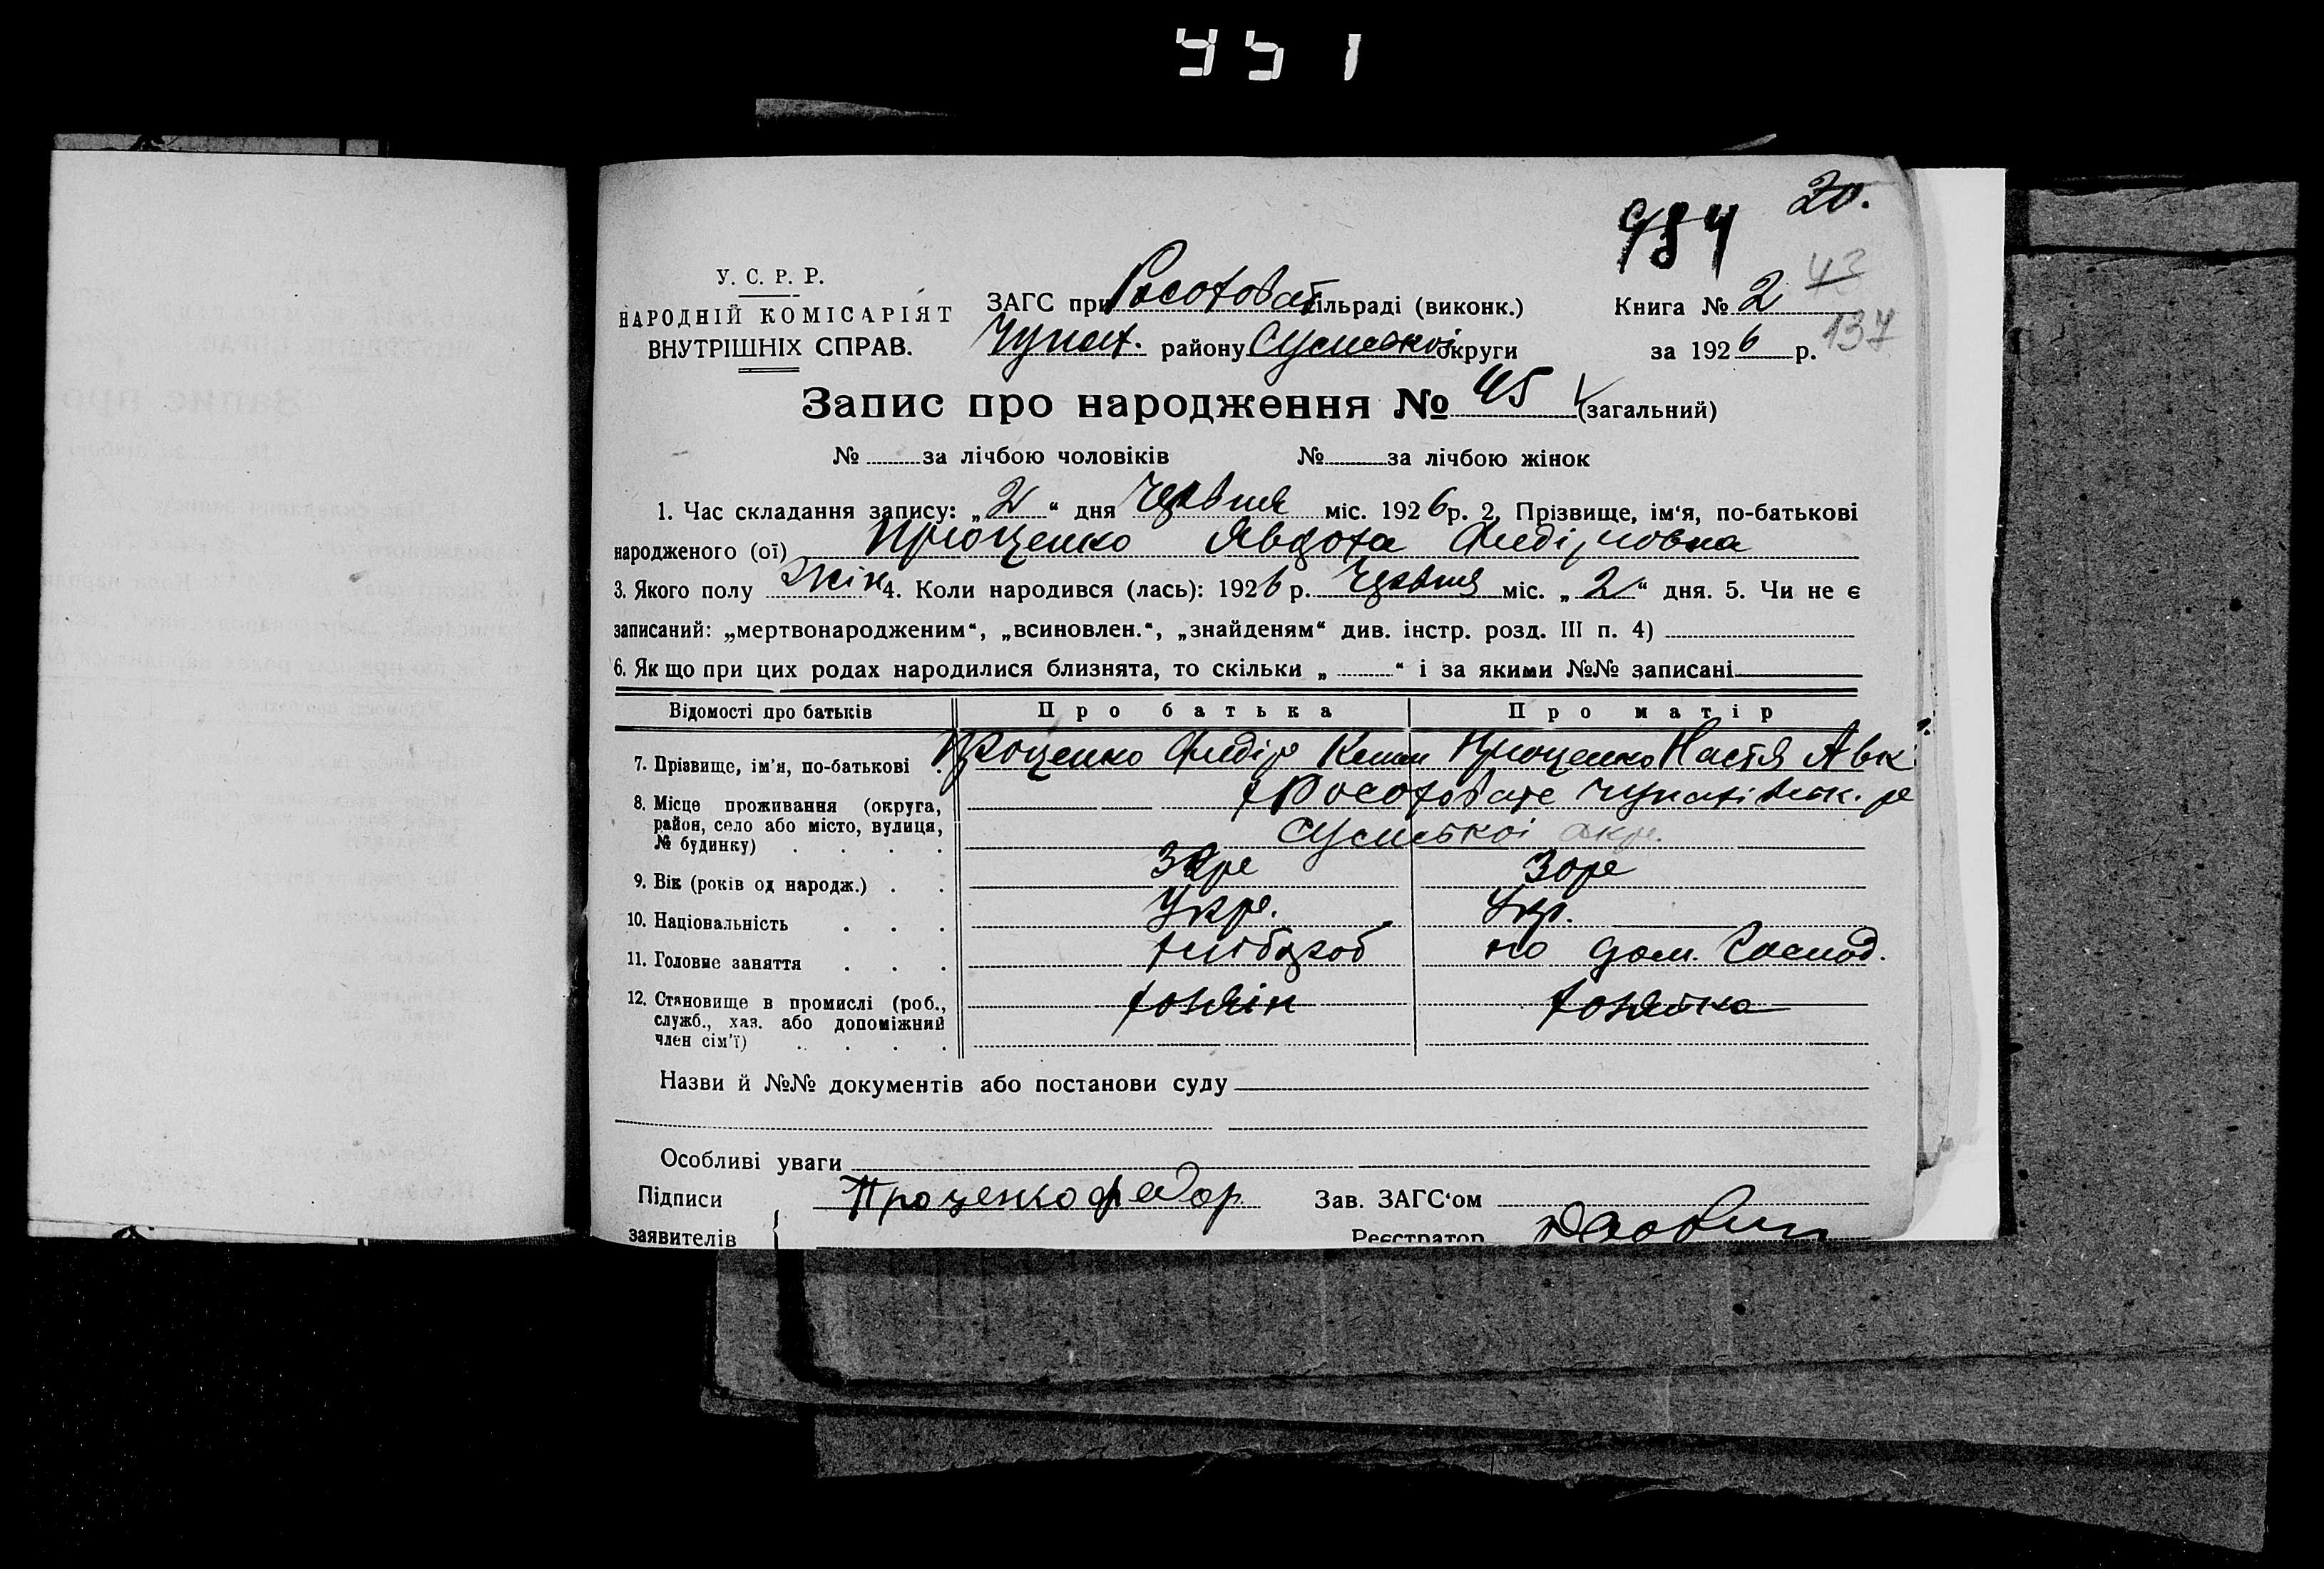 951
20.
984
У. С. Р. Р.
НАРОДНІЙ КОМІСАРІЯТ
ВНУТРІШНІХ СПРАВ.
ЗАГС при Росоховат сільраді (виконк.)
Чупах. району Сумської округи
Книга № 2 43
за 1926 р. 137
Запис про народження № 45 (загальний)
№ за лічбою чоловіків № за лічбою жінок
1. Час складання запису: „2“ дня Червня міс. 1926 р. 2. Прізвище, ім‘я, по-батькові
народженого (ої) Проценко Явдоха Федіровна
3. Якого полу Жін 4. Коли народився (лась): 1926 р. Червня міс. „2“ дня. 5. Чи не є
записаний: „мертвонародженим“, „всиновлен.“, „знайденям“ див. інстр. розд. III п. 4)
6. Якщо при цих родах народилися близнята, то скільки „ “ і за якими №№ записані
Відомості про батьків Про батька Про матір
7. Прізвище, ім’я, по-батькові . Проценко Федір Проценко Настя Авк
8. Місце проживання (округа,
район, село або місто, вулиця,
№ будинку) . . . .
х Росоховате Чупахівськ. р
Сумської окр.
9. Вік (років од народж.) . . Зор
10. Національність . . . Укр. Укр.
11. Головне заняття . . . хлібороб по дом. Господ.
12. Становище в промислі (роб.,
служб., хаз. або допоміжний
член сім’ї) . . . .
хозяін хозяйка
Назви й №№ документів або постанови суду
Особливі уваги
Підписи Проценко федор Зав. ЗАГС‘ом
заявителів Реєстратор